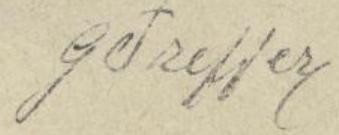 G Treffer